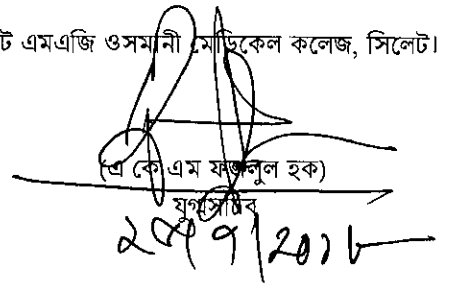 ট এমএজি ওসমানী মেডিকেল কলেজ, সিলেট।
(এ কে এম ফজলুল হক)
যুগ্মসচিব